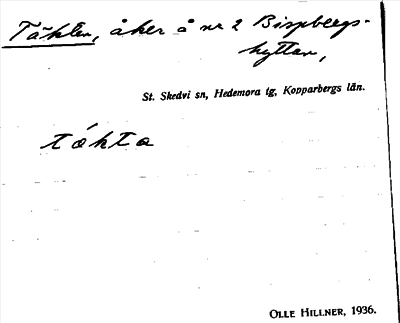 Täkten, åker å nr 2 Bispbergs-
hyttan,
St. Skedvi sn, Hedemora tg, Kopparbergs län.
tǽkta
OLLE HILLNER, 1936.